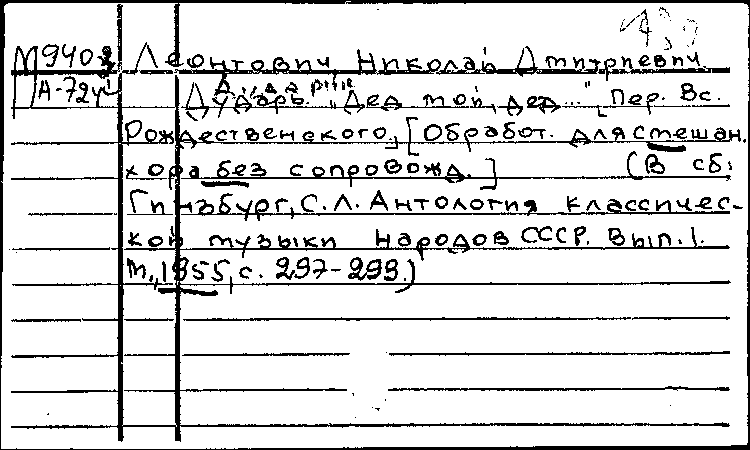 М940
А-72
Леонтович Николай Дмитриевич
Дударь. "Дед мой, дед..." [Пер. Вс.
Рождественского.] [Обработ. для смешан.
хора без сопровожд.] (В сб:
Гинзбург, С.Л. Антология классичес-
кой музыки народов СССР. Вып.1.
М., 1955, с. 297-299.)